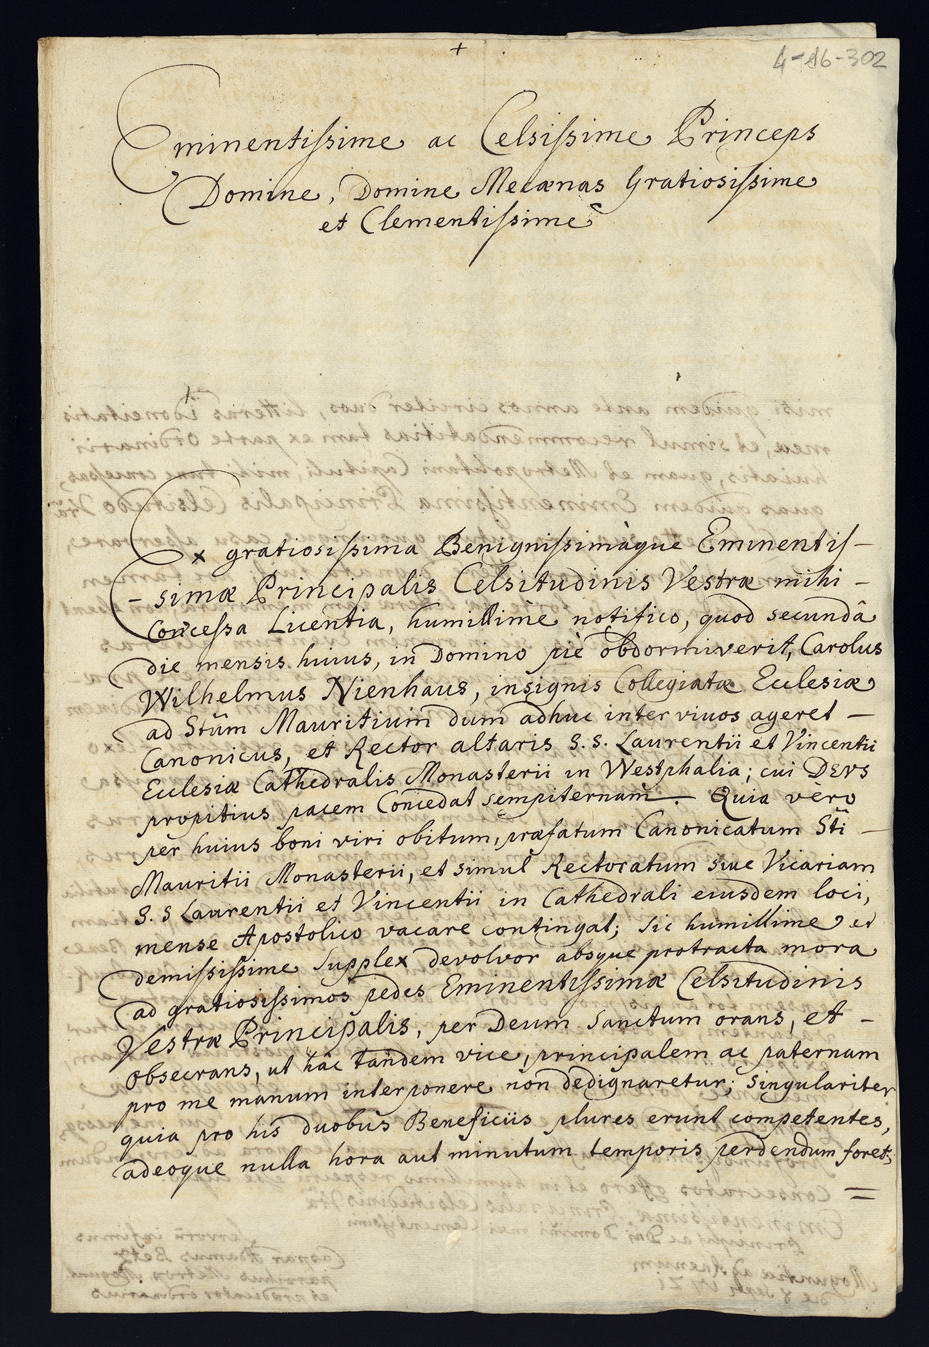 +
4-A6-302
Eminentissime ac Celsissime Princeps
Domine, Domine Mecænas Gratiosissime
et Clementissime
Ex gratiosissima Benignissimàque Eminentis-
-simæ Principalis Celsitudinis Vestræ mihi -
Concessa Licentia, humillime notifico, quod secundâ
die mensis huius, in Domino piè obdormiverit, Carolus
Wilhelmus Nienhaus, insignis Collegiatæ Ecclesiæ
ad Stūm Mauritium dum adhuc inter vivos ageret -
Canonicus, et Rector altaris S.S. Laurentii et Vincentii
Ecclesiæ Cathedralis Monasterii in Westphalia; cui DEVS
propitius pacem Concedat sempiternam. Quia vero
per huius boni viri obitum, præfatum Canonicatum Sti -
Mauritii Monasterii, et simul Rectoratum sive Vicariam
S. S Laurentii et Vincentii in Cathedrali eiusdem loci,
mense Apostolico vacare contingat; sic humillime et
demississime supplex devolvor absque protracta mora
ad gratiosissimos pedes Eminentissimæ Celsitudinis
Vestræ Principalis, per Deum Sanctum orans, et -
obsecrans, ut hâc tandem vice, principalem ac paternam
pro me manum interponere non dedignaretur; singulariter
quia pro his duobus Beneficiis plures erunt competentes,
adeoque nulla hora aut minutum temporis perdendum foret,
=